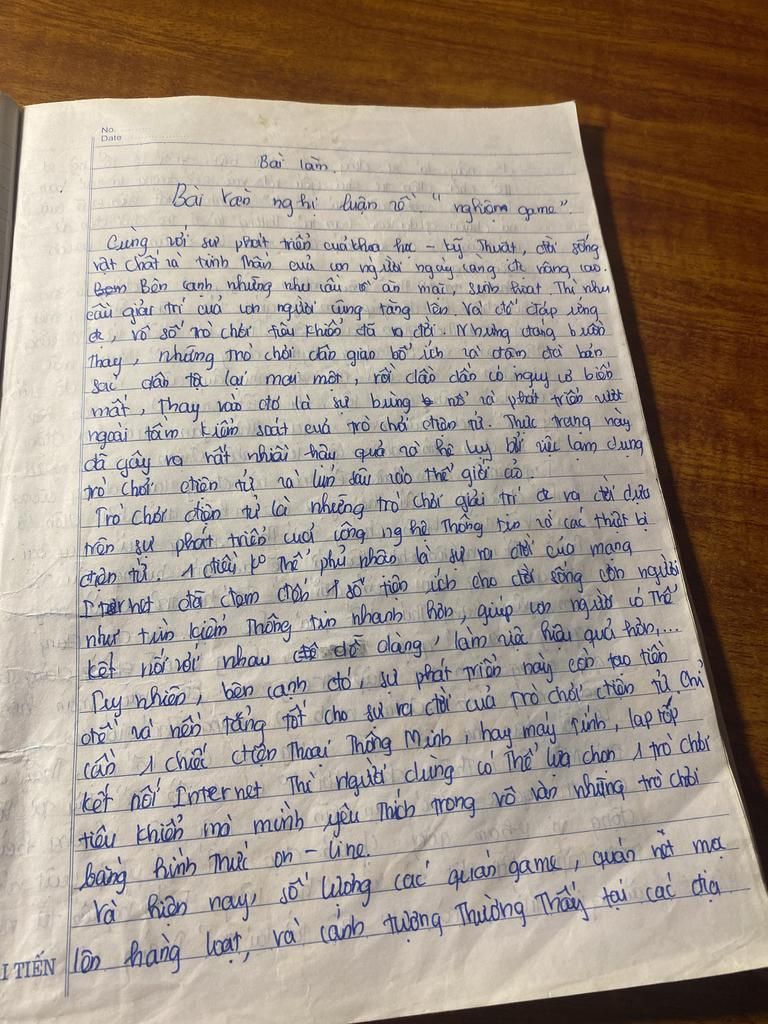 No.
Date
Bài làm.
Bài văn nghị luận về "nghiện game".
Cùng với sự phát triển của khoa học - kỹ thuật, đời sống
vật chất và tinh thần của con người ngày càng đc nâng cao.
Bên cạnh những nhu cầu về ăn mặc, sinh hoạt. Thì nhu
cầu giải trí của con người cũng tăng lên. Và để đáp ứng
đc, vô số trò chơi tiêu khiển đã ra đời. Nhưng đáng buồn
thay, những trò chơi dân gian bổ ích và đậm đà bản
sắc dân tộc lại mai một, rồi dần dần có nguy cơ biến
mất, thay vào đó là sự bùng nổ và phát triển vượt
ngoài tầm kiểm soát của trò chơi điện tử. Thực trạng này
đã gây ra rất nhiều hậu quả và hệ lụy bởi việc lạm dụng
trò chơi điện tử và lún sâu vào thế giới ảo.
Trò chơi điện tử là những trò chơi giải trí đc ra đời dựa
trên sự phát triển của công nghệ thông tin và các thiết bị
điện tử. 1 điều ko thể phủ nhận là sự ra đời của mạng
Internet đã đem đến 1 số tiện ích cho đời sống con người
như tìm kiếm thông tin nhanh hơn, giúp con người có thể
kết nối với nhau dễ dàng, làm việc hiệu quả hơn,...
Tuy nhiên, bên cạnh đó, sự phát triển này còn tạo tiền
đề và nền tảng tốt cho sự ra đời của trò chơi điện tử. Chỉ
cần 1 chiếc điện thoại thông minh, hay máy tính, laptop
kết nối Internet thì người dùng có thể lựa chọn 1 trò chơi
tiêu khiển mà mình yêu thích trong vô vàn những trò chơi
bằng hình thức on-line.
Và hiện nay, số lượng các quán game, quán nét mọc
lên hàng loạt, và cảnh tượng thường thấy tại các địa
I TIẾN